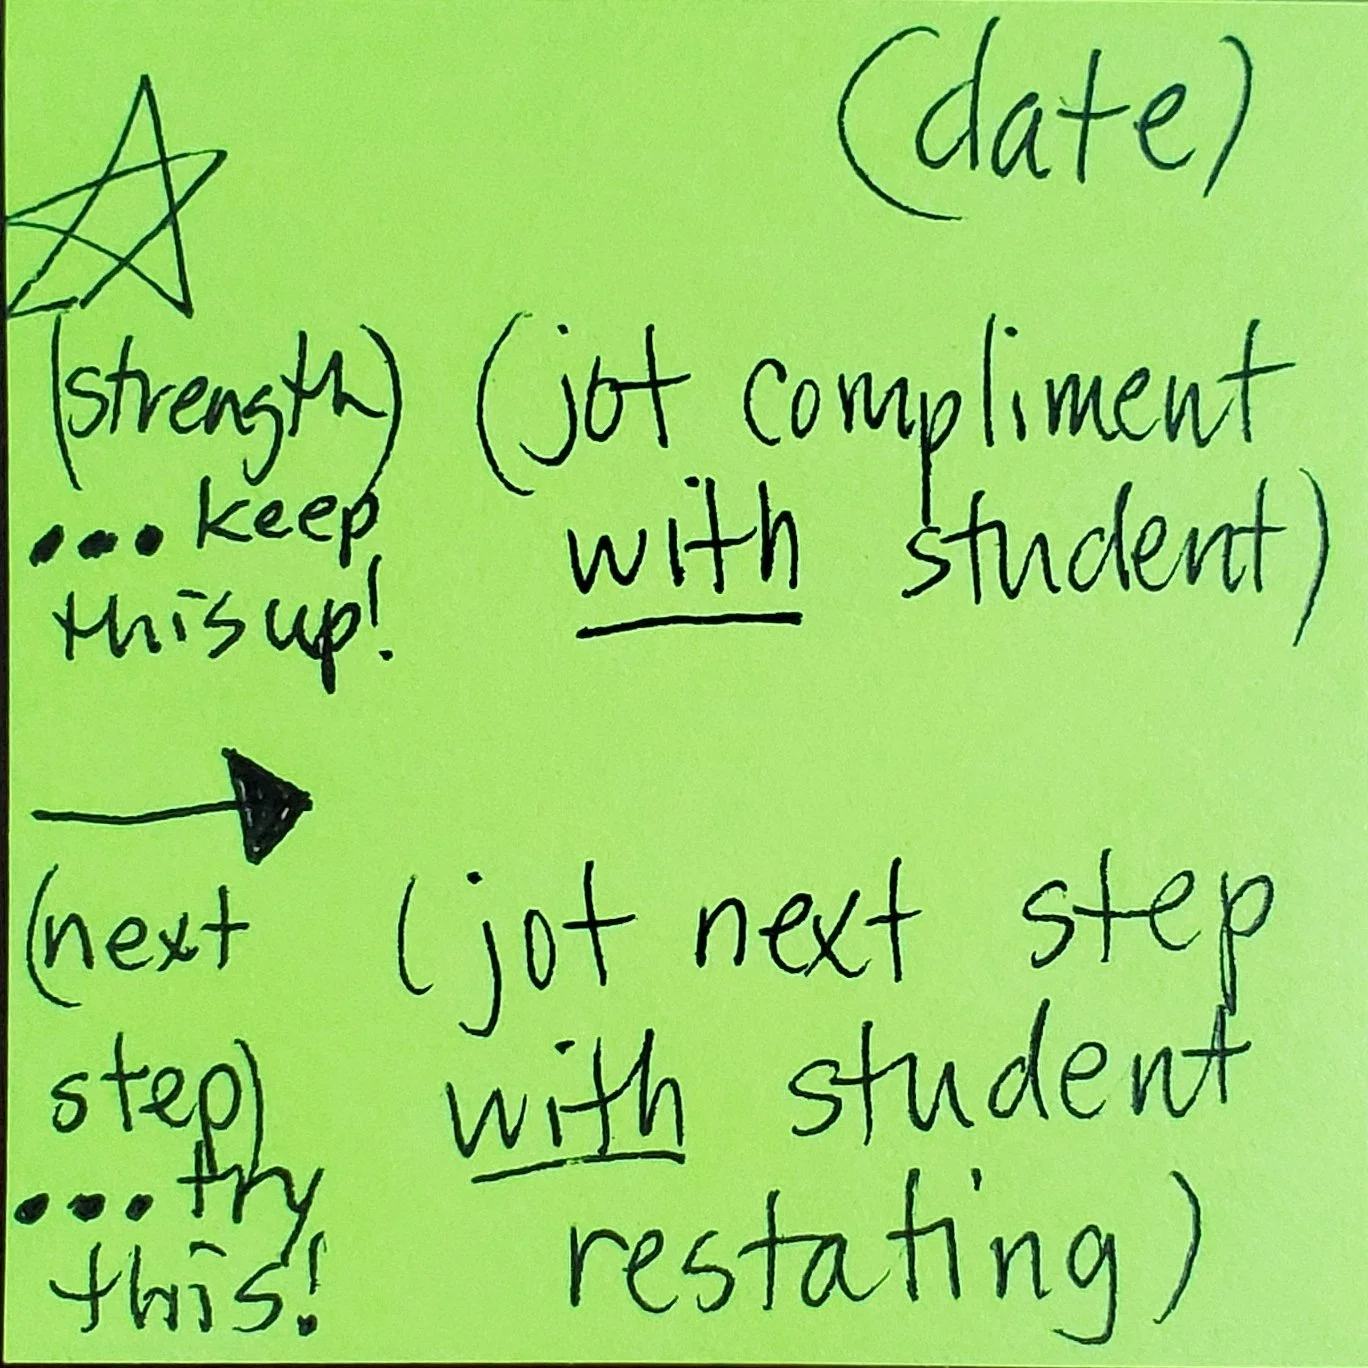 (date)
(strength) (jot compliment
... keep with student)
this up!
(next (jot next step
step) with student
... try restating)
this!